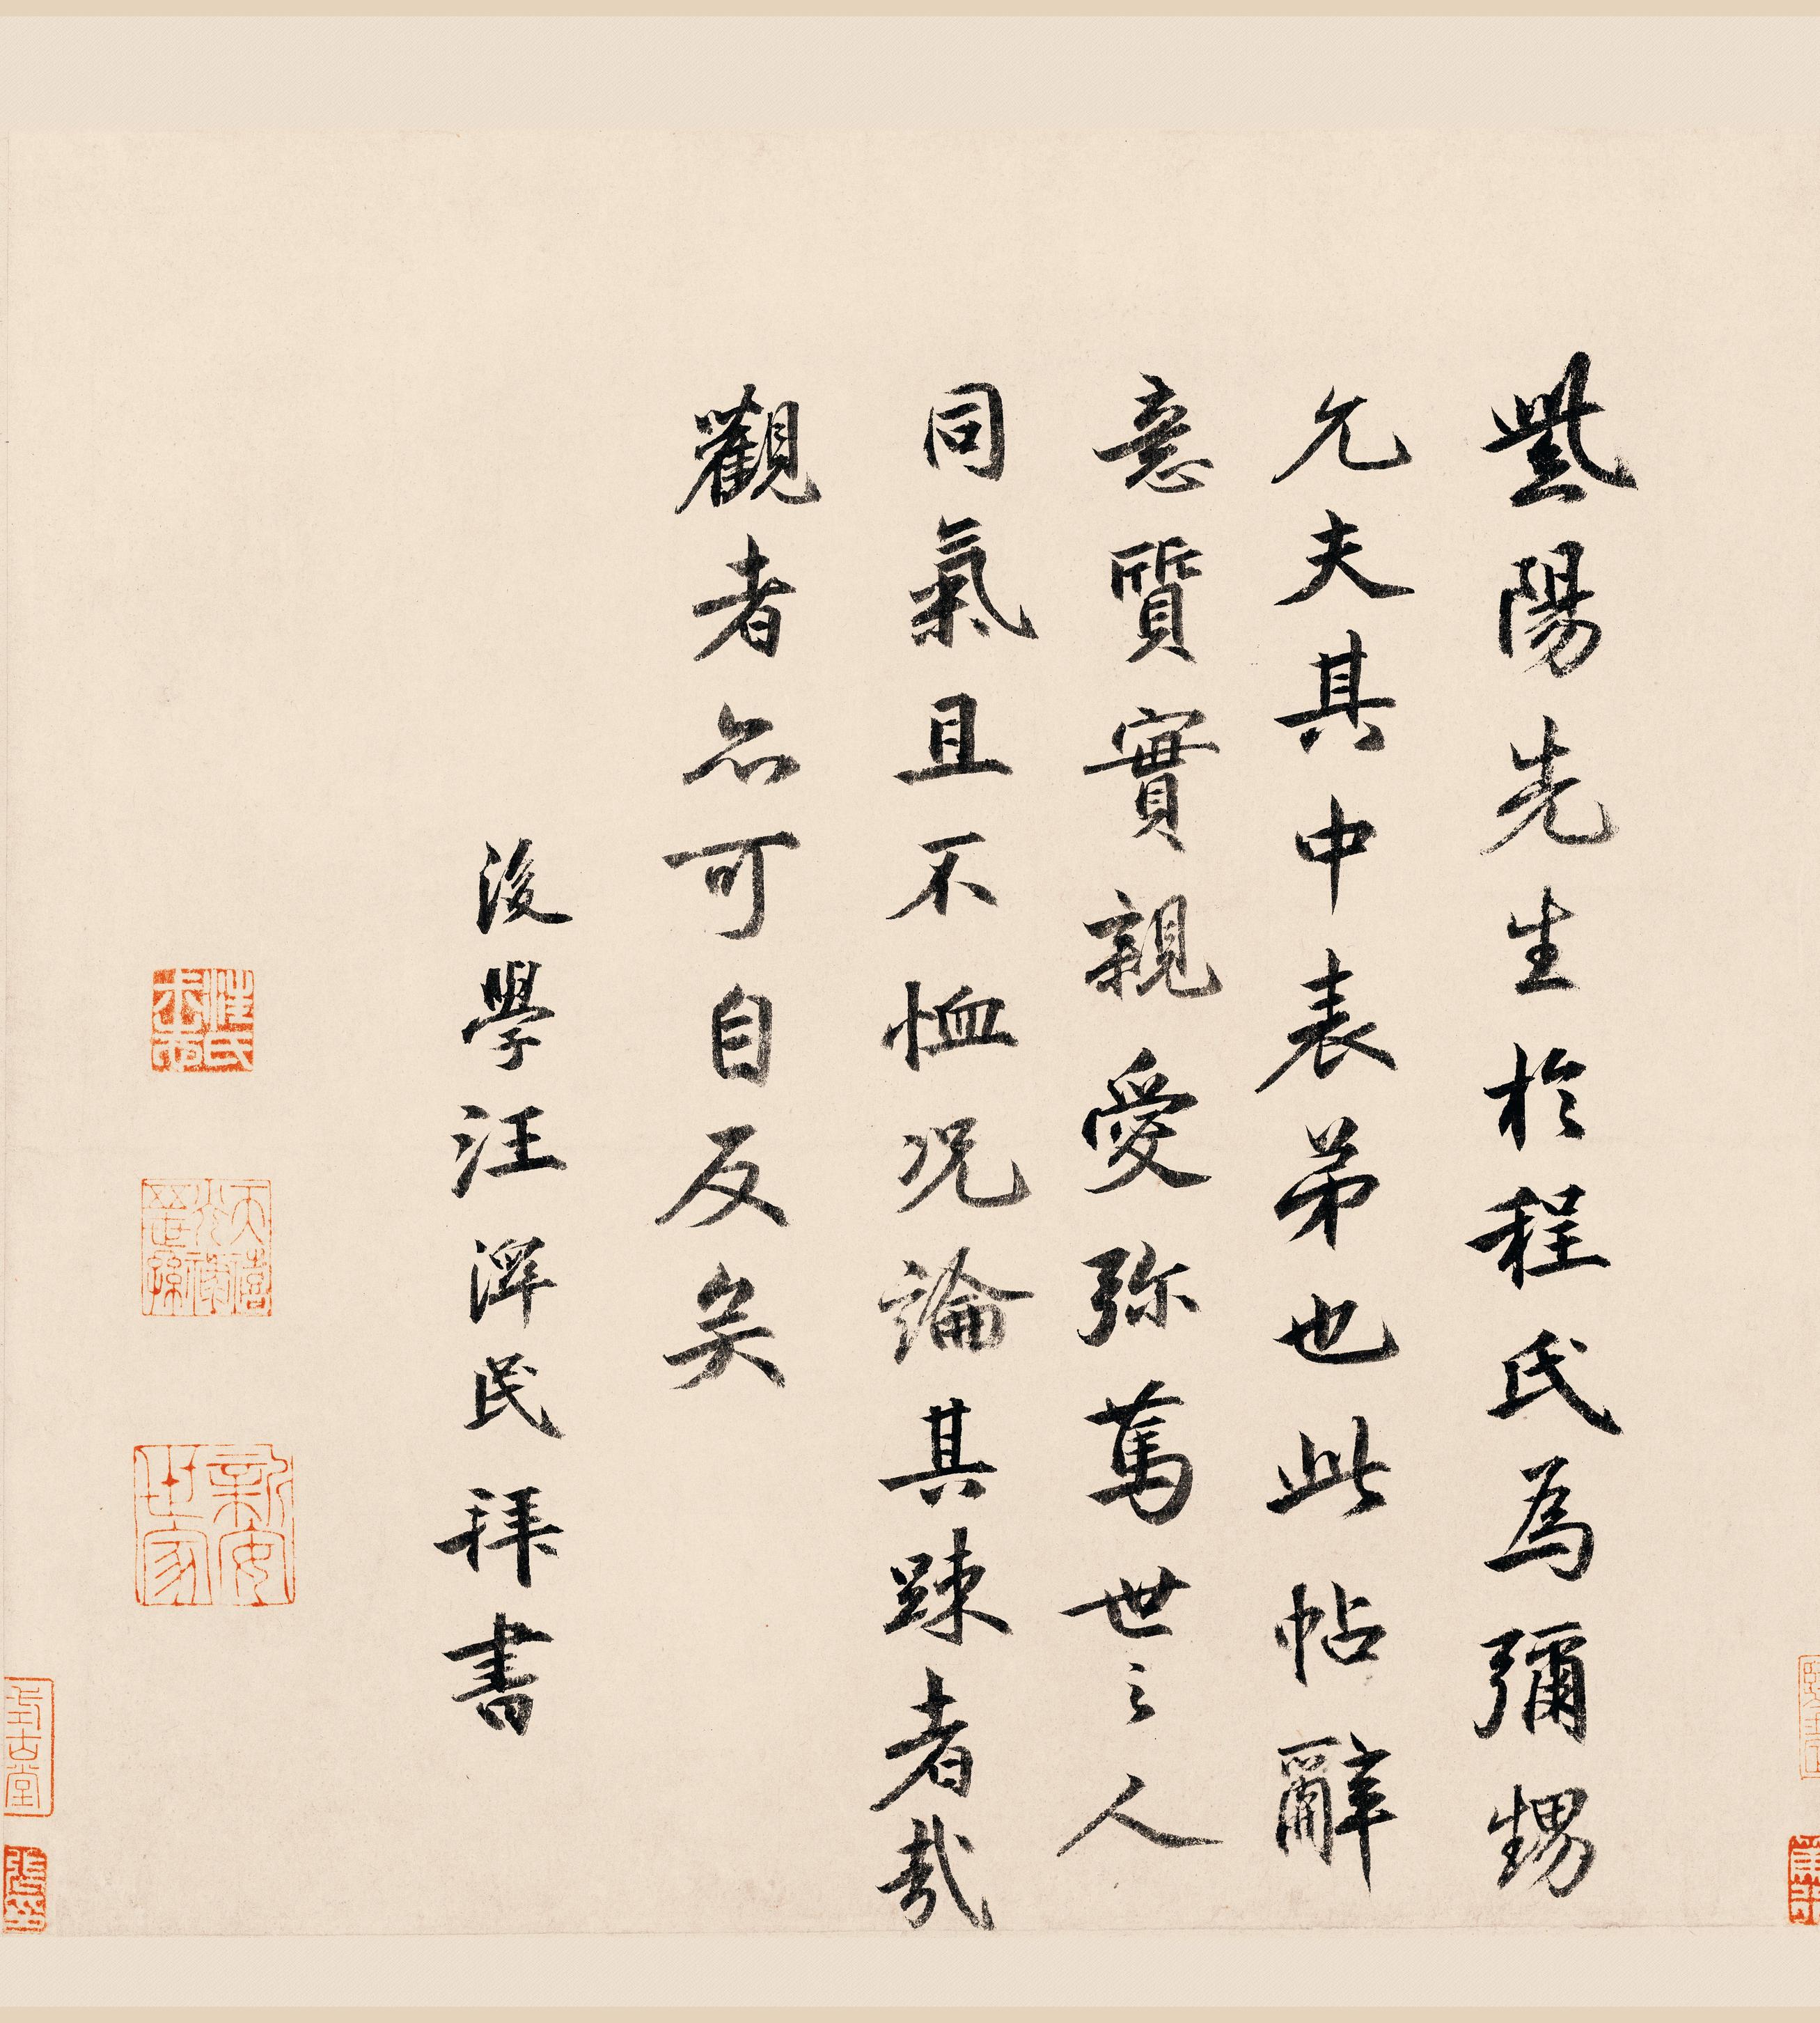 紫陽先生於程氏為彌甥
允夫其中表弟也此帖辭
意質實親愛弥篤世之人
同氣且不恤况論其踈者哉
觀者亦可自反矣
後學汪澤民拜書
汪氏
新安世家